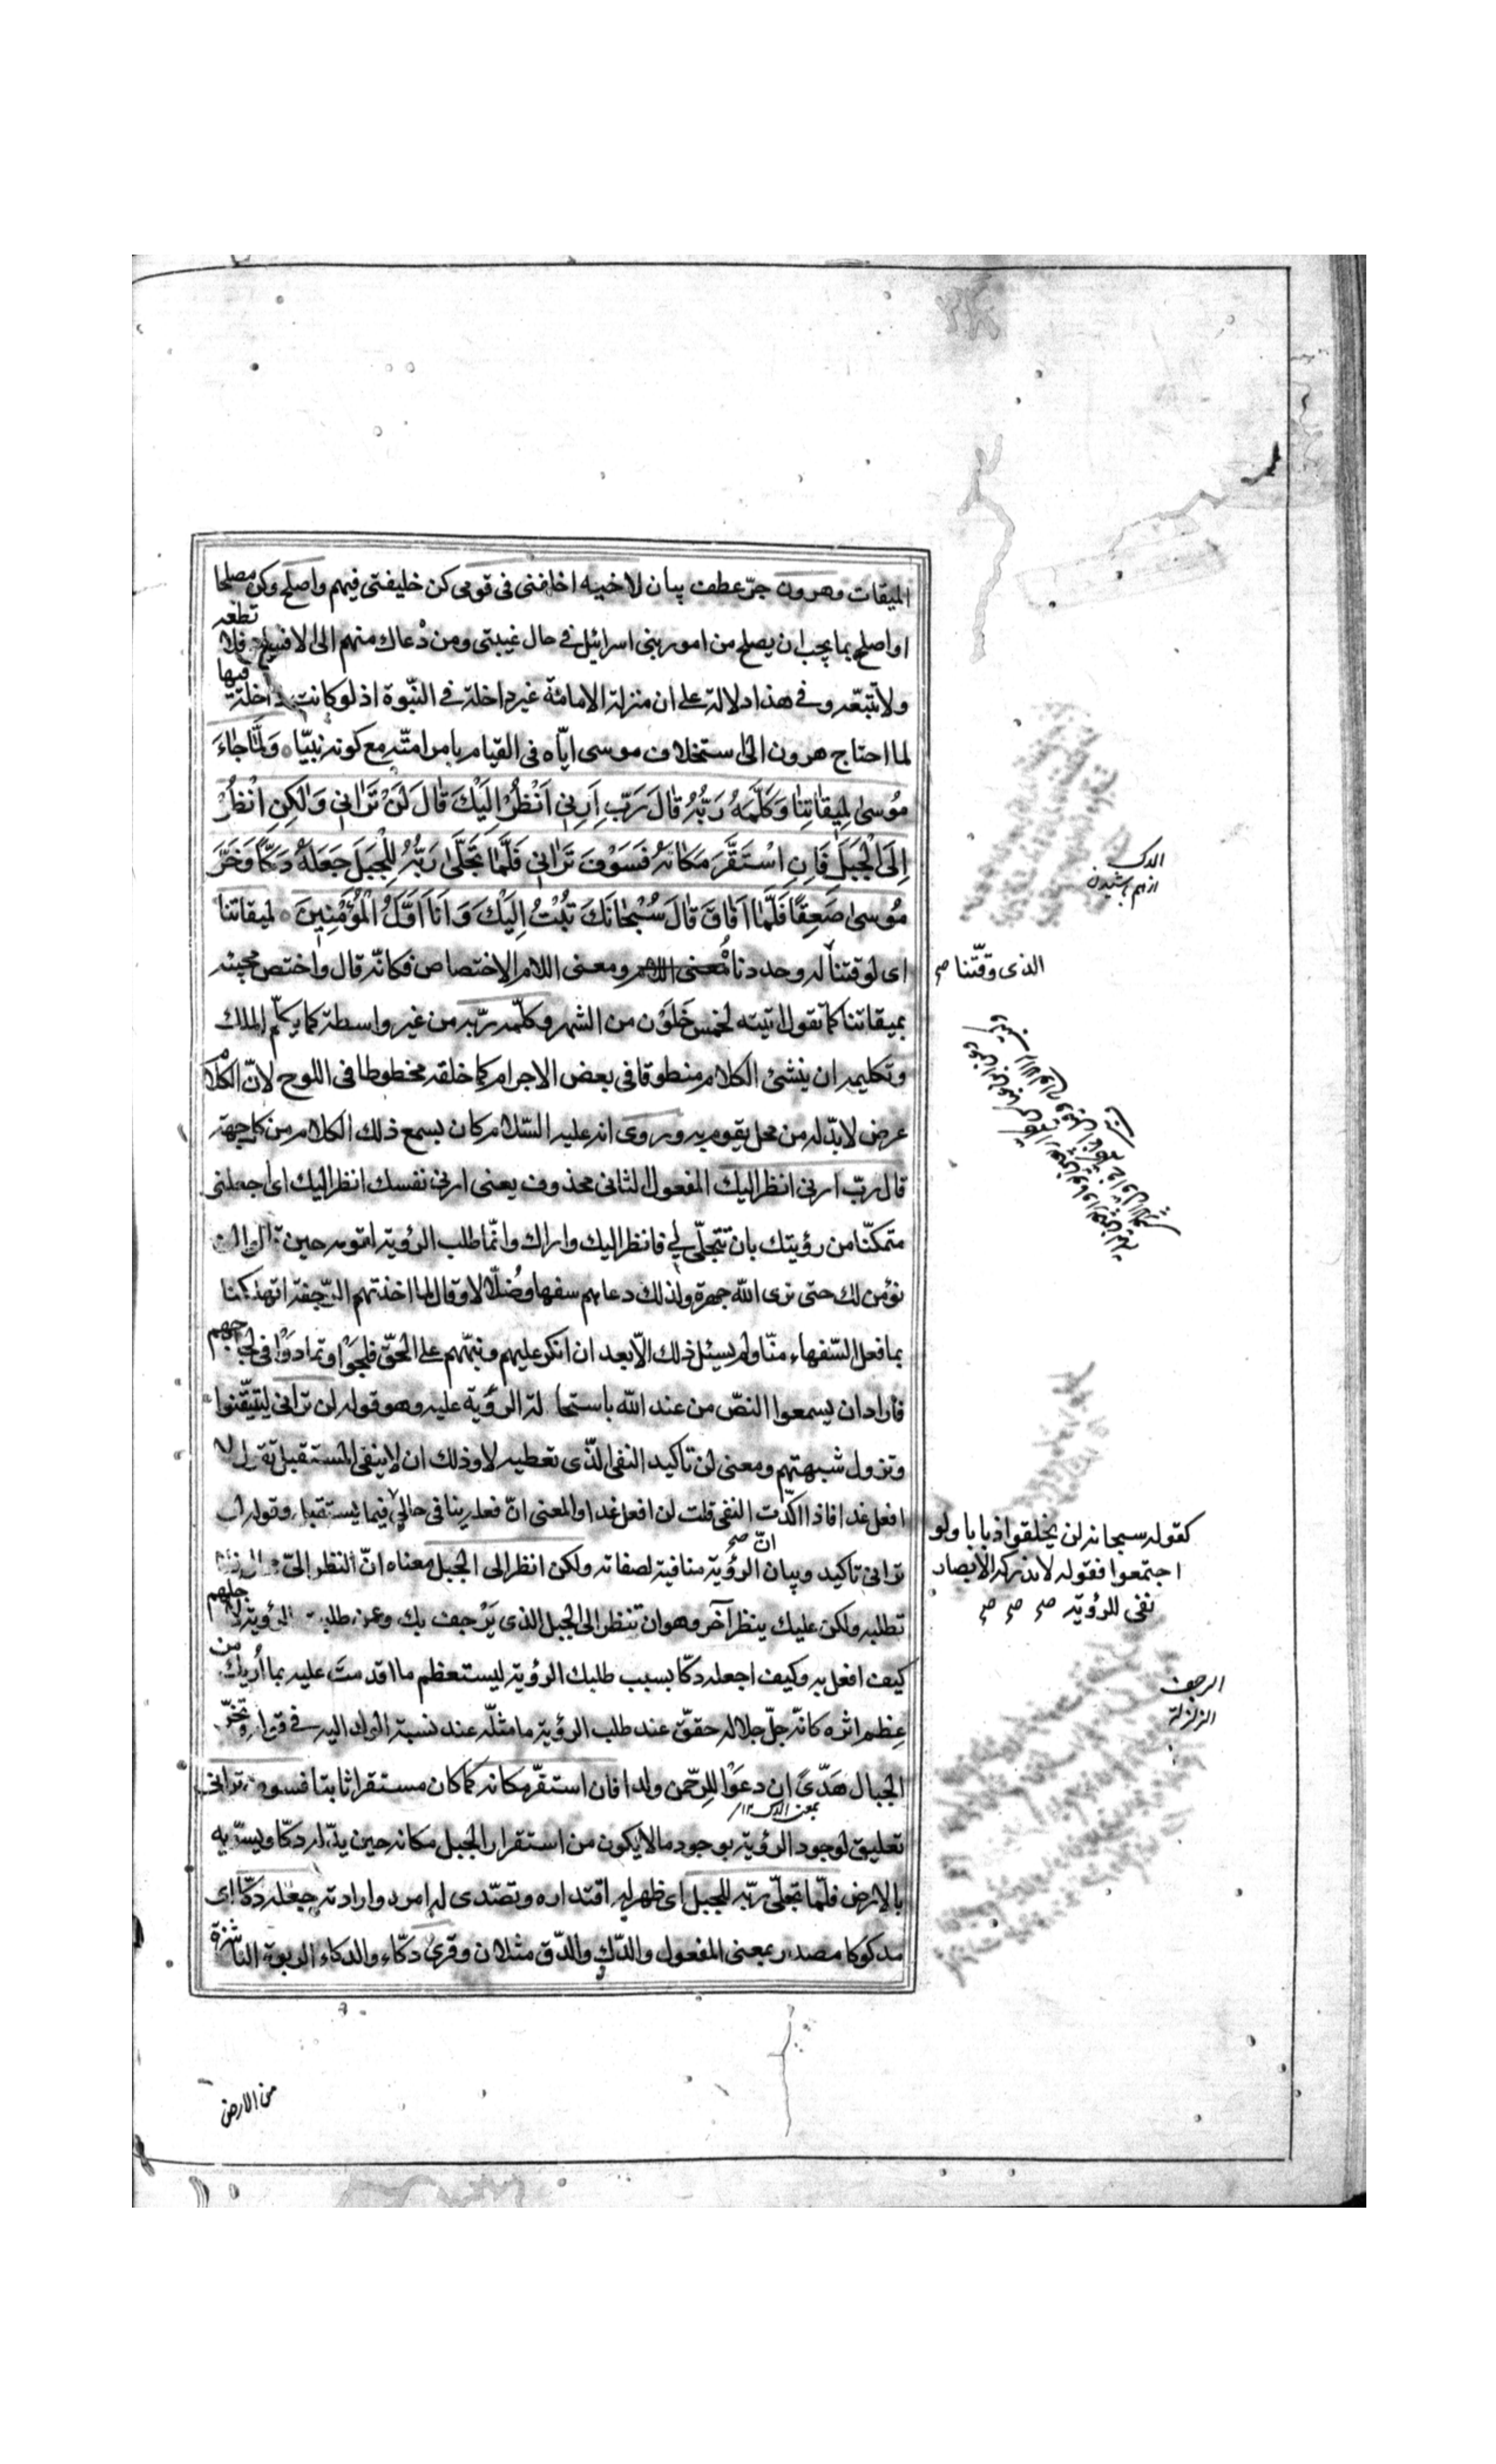 الميقات وهرون جرّ عطف بيان لاخيه اخلفنى فى قومى كن خليفتى فيهم واصلح وكن مصلحا
او اصلح بما يجب ان يصلح من امور بنى اسرائيل فى حال غيبتى ومن دعاك منهم الى الافساد فلا تطعه
ولا تتبعه وفى هذا دلالة على ان منزلة الامامة غير داخلة فى النبّوة اذ لو كانت داخلة فيها
لما احتاج هرون الى استخلاف موسى ايّاه فى القيام بامر امتّه مع كونه نبيّا وَلَمَّا جَاءَ
مُوسىٰ لِمِيقَاتِنَا وَكَلَّمَهُ رَبُّهُ قَالَ رَبِّ اَرِنِى اَنْظُرْ اِلَيْكَ قَالَ لَنْ تَرَانِى وَلٰكِنِ انْظُرْ
اِلَى الْجَبَلِ فَاِنِ اسْتَقَرَّ مَكَانَهُ فَسَوْفَ تَرَانِى فَلَمَّا تَجَلّٰى رَبُّهُ لِلْجَبَلِ جَعَلَهُ دَكّاً وَخَرَّ
مُوسىٰ صَعِقًا فَلَمَّا اَفَاقَ قَالَ سُبْحَانَكَ تُبْتُ اِلَيْكَ وَاَنَا اَوَّلُ الْمُؤْمِنِينَ لميقاتنا
اى لوقتنا له وحددنا ومعنى اللام الاختصاص فكانّه قال واختص مجيئه
الذى وقّتنا صح
بميقاتنا كما تقول اتيته لخمس خَلَوْن من الشهر وكلّمه ربّه من غير واسطة كما يكلّم الملك
وتكليمه ان ينشئ الكلام منطوقا فى بعض الاجرام كما خلقه مخطوطا فى اللوح لانّ الكلام
عرض لا بدّ له من محل يقوم به وروى انه عليه السّلام كان يسمع ذلك الكلام من كل جهة
قال ربّ ارنى انظر اليك المفعول الثانى محذوف يعنى ارنى نفسك انظر اليك اى اجعلنى
متمكنّا من رؤيتك بان تتجلّى لى فانظر اليك واراك وانّما طلب الرؤية لقومه حين قالوا لن
نؤمن لك حتى نرى الله جهرة ولذلك دعاهم سفهاء وضُلّالا وقال لما اخذتهم الرّجفة اتهلكنا
بما فعل السّفهاء منّا ولم يسئل ذلك الّا بعد ان انكر عليهم ونبّههم على الحقّ فلجّوا وتمادَوْا فى لجاجهم
فاراد ان يسمعوا النصّ من عند الله باستحالة الرؤية عليه وهو قوله لن ترانى ليتيّقنوا
وتزول شبهتهم ومعنى لن تاكيد النفى الذّى تعطيه لا وذلك ان لا ينفى المستقبل تقول لا
افعل غدا فاذا اكدّت النفى قلت لن افعل غدا والمعنى انّ فعله ينافى حالى فيما يستقبل وقوله لن
كقوله سبحانه لن يخلقوا ذبابا ولو
اجتمعوا فقوله لا تدركه الابصار
نفى للرؤية صح صح صح
ترانى تاكيد وبيان انّ صح الرؤية منافية لصفاته ولكن انظر الى الجبل معناه انّ النظر الىّ
تطلبه ولكن عليك بنظر آخر وهو ان تنظر الى الجبل الذى يَرْجف بك وعمن طلبت الرؤية لاجلهم
كيف افعل به وكيف اجعله دكّا بسبب طلبك الرؤية ليستعظم ما اقدمتَ عليه بما أُريك من
عِظم اثره كانّه جلّ جلاله حقّق عند طلب الرؤية ما مثلّه عند نسبة الولد اليه فى قوله وتخرّ
الجبال هَدّىً ان دعَوْا للرحّمن ولدا فان استقرّ مكانه كما كان مستقرا ثابتا فسوف ترانى
تعليق لوجود الرؤية بوجود ما لا يكون من استقرار الجبل مكانه حين يدّكه دكّا ويسوّيه
بالارض فلمّا تجلّى ربّه للجبل اى ظهر له اقتداره وتصّدى له امره وارادته جعله دكّا اى
مدكوكا مصدر بمعنى المفعول والدّك والدّق مثلان وقرئ دكّاء والدكاء الربوة الناشزة
الدك
از هم پاشيدن
الرجف
الزلزلة
من الارض